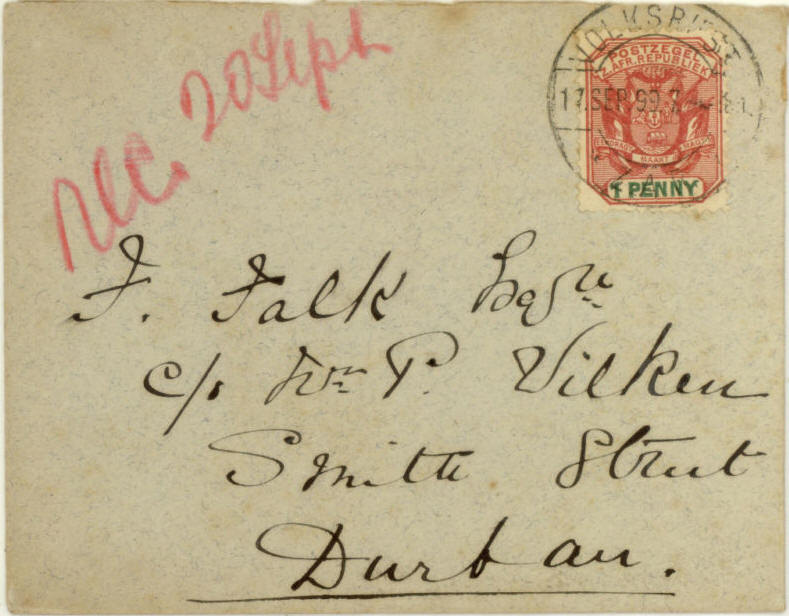 Rec. 20 Sept
VOLKSRUST
17 SEP 99
Z.A.R.
POSTZEGEL
Z. AFR. REPUBLIEK
EENDRAGT MAAKT MAGT
1 PENNY
F. Falk Esqre
c/o P. Vilken
Smith Street
Durban.